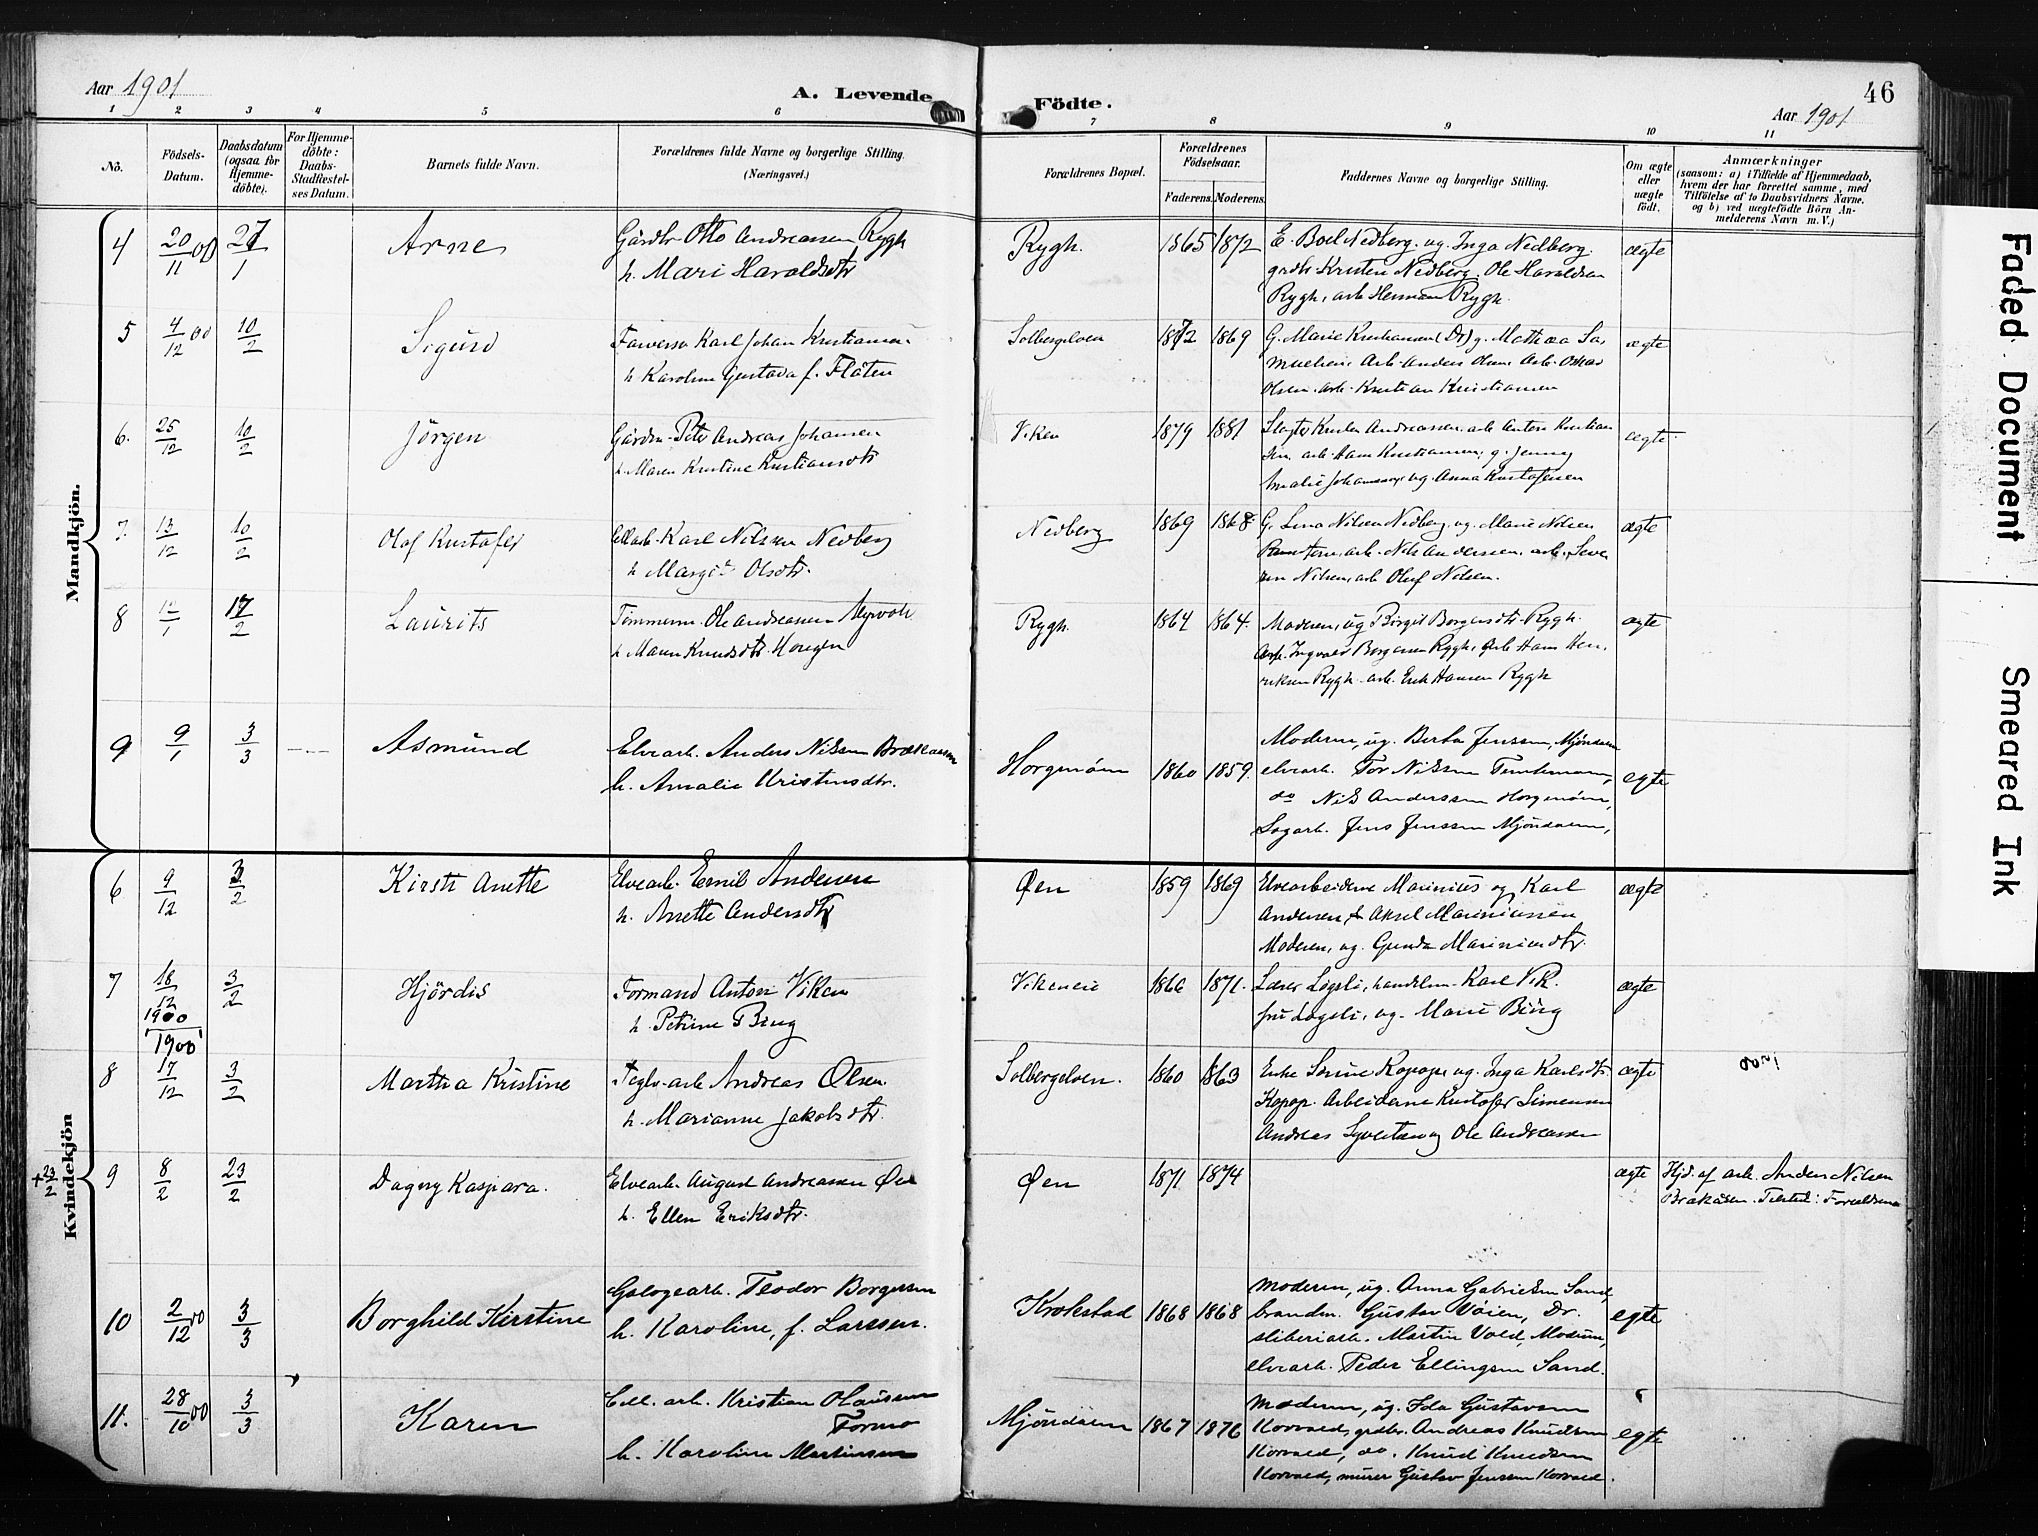 Aar 1901
A. Levende
Födte.
46
Aar 1901
1 2 3 4 5 6 7 8 9 10 11
Nö.
Födsels-
Datum.
Daabsdatum
(ogsaa for
Hjemme-
döbte).
For Hjemme-
döbte:
Daabs-
Stadfæstel-
ses Datum.
Barnets fulde Navn.
Forældrenes fulde Navne og borgerlige Stilling.
(Næringsvei.)
Forældrenes Bopæl.
Forældrenes
Födselsaar.
Faderens. Moderens.
Faddernes Navne og borgerlige Stilling.
Om ægte
eller
uægte
födt.
Anmærkninger
(saasom: a) i Tilfælde af Hjemmedaab,
hvem der har forrettet samme, med
Tilföielse af to Daabsvidners Navne,
og b) ved uægtefödte Börn An-
melderens Navn m. V.)
Mandkjön.
4 20/11 00 27/1 Arne
Gårdbr Otto Andreassen Rygh
h. Mari Haraldsdtr
Rygh. 1865 1872
E. Boel Nedberg. ug. Inga Nedberg.
grdbr Kristen Nedberg. Ole Haraldsen
Rygh, arb Herman Rygh
ægte
5 4/12 00 10/2 Sigurd
Farverso Karl Johan Kristiansen
h Karoline Gustava f. Flåten
Solbergelven 1872 1869
G. Marie Kristiansen (Dr) g. Mathea Sa,
muelsen. Arb. Anders Olsen. Arb. Oskar
Olsen. arb. Kristian Kristiansen
ægte
6. 25/12 10/2 Jörgen
Gårdm. Peter Andreas Johansen
h. Maren Kristine Kristiansdtr
Viken 1879 1881
Slagter Kristen Andreassen. arb Anton Kristian
sen. arb. Hans Kristiansen, g. Jenny
Amalie Johannessen ug. Anna Kristofersen
ægte
7. 13/12 10/2 Olaf Kristofer
Karl Nilsen Nedberg
h Margit Olsdtr.
Nedberg 1869 1868
G. Lina Nilsen Nedberg, ug. Marie Nilsen
arb. Nils Anderssen. arb. Seve
rin Nilsen, arb Oluf Nilsen.
ægte
8 12/1 17/2 Laurits
Tömmerm. Ole Andreassen Myrvold
h Maren Knudsdtr. Horgen
Rygh. 1864 1864.
Moderen, ug Birgit Borgersdtr Rygh.
Arb. Ingvald Borgersen Rygh, Arb Hans Hen,
riksen Rygh. arb. Erik Hansen Rygh
ægte
9 9/1 3/3 Asmund
Elvearb. Anders Nilsen Brækåsen
h. Amalie Kristensdtr.
Horgenöen 1860 1859.
Moderen, ug. Berta Jenssen, Mjöndalen
elvearb. Tor Nilsen
do Nils Anderssen Horgenöen,
Sagarb. Jens Jenssen Mjöndalen,
egte
Kvindekjön
6 9/12 3/2 Kirsti Anette
Elvearb. Emil Andersen
h. Anette Andersdtr
Øen 1859 1869
Elvearbeiderne Marinius og Karl
Andersen & Aksel Mariniussen
Moderen, ug. Gunda Mariniusdtr.
ægte
7 18/12 1900 3/2 Hjördis
Formand Anton Viken
h. Petrine Bing
Vikeneie 1866 1871.
Lærer Lögsli, handelsm. Karl Vik.
fru Lögsli, ug. Marie Bing
ægte
1900
8 17/12 3/2 Martha Kristine
Teglv. arb Andreas Olsen
h. Marianne Jakobsdtr.
Solbergelven. 1860 1863
Enke Sörine Kopope ug. Inga Karlsdtr.
Kopop. Arbeiderne Kristofer Simensen
Andreas Syvertsen og Ole Andreassen
ægte
1900
+23/2
9 8/2 23/2 Dagny Kaspara.
Elvearb. August Andreassen Øen
h. Ellen Eriksdtr.
Øen 1871 1874
ægte
Hjd. af arb. Anders Nilsen
Brækåsen. Tilsted: Forældrene
10 2/12 00 3/3 Borghild Kirstine
Galogearb. Teodor Borgersen
h. Karoline, f. Larssen.
Krokstad 1868 1868
Moderen, ug. Anna Gabrielsen Sand,
brandm. Gustav Vöien, Dr.
sliberiarb. Martin Vold, Modum,
elvearb. Peder Ellingsen Sand.
egte
11. 28/10 00 3/3 Karen
Cell. arb. Kristian Olaussen
Formo
h. Karoline Martinsen
Mjöndalen 1867 1876
Moderen, ug. Ida Gustavsen
Korvald, grdbr. Andreas Knudsen
Korvald, do. Knud Knudsen
Korvald, murer Gustav Jenssen Korvald.
egte
Faded Document
Smeared Ink